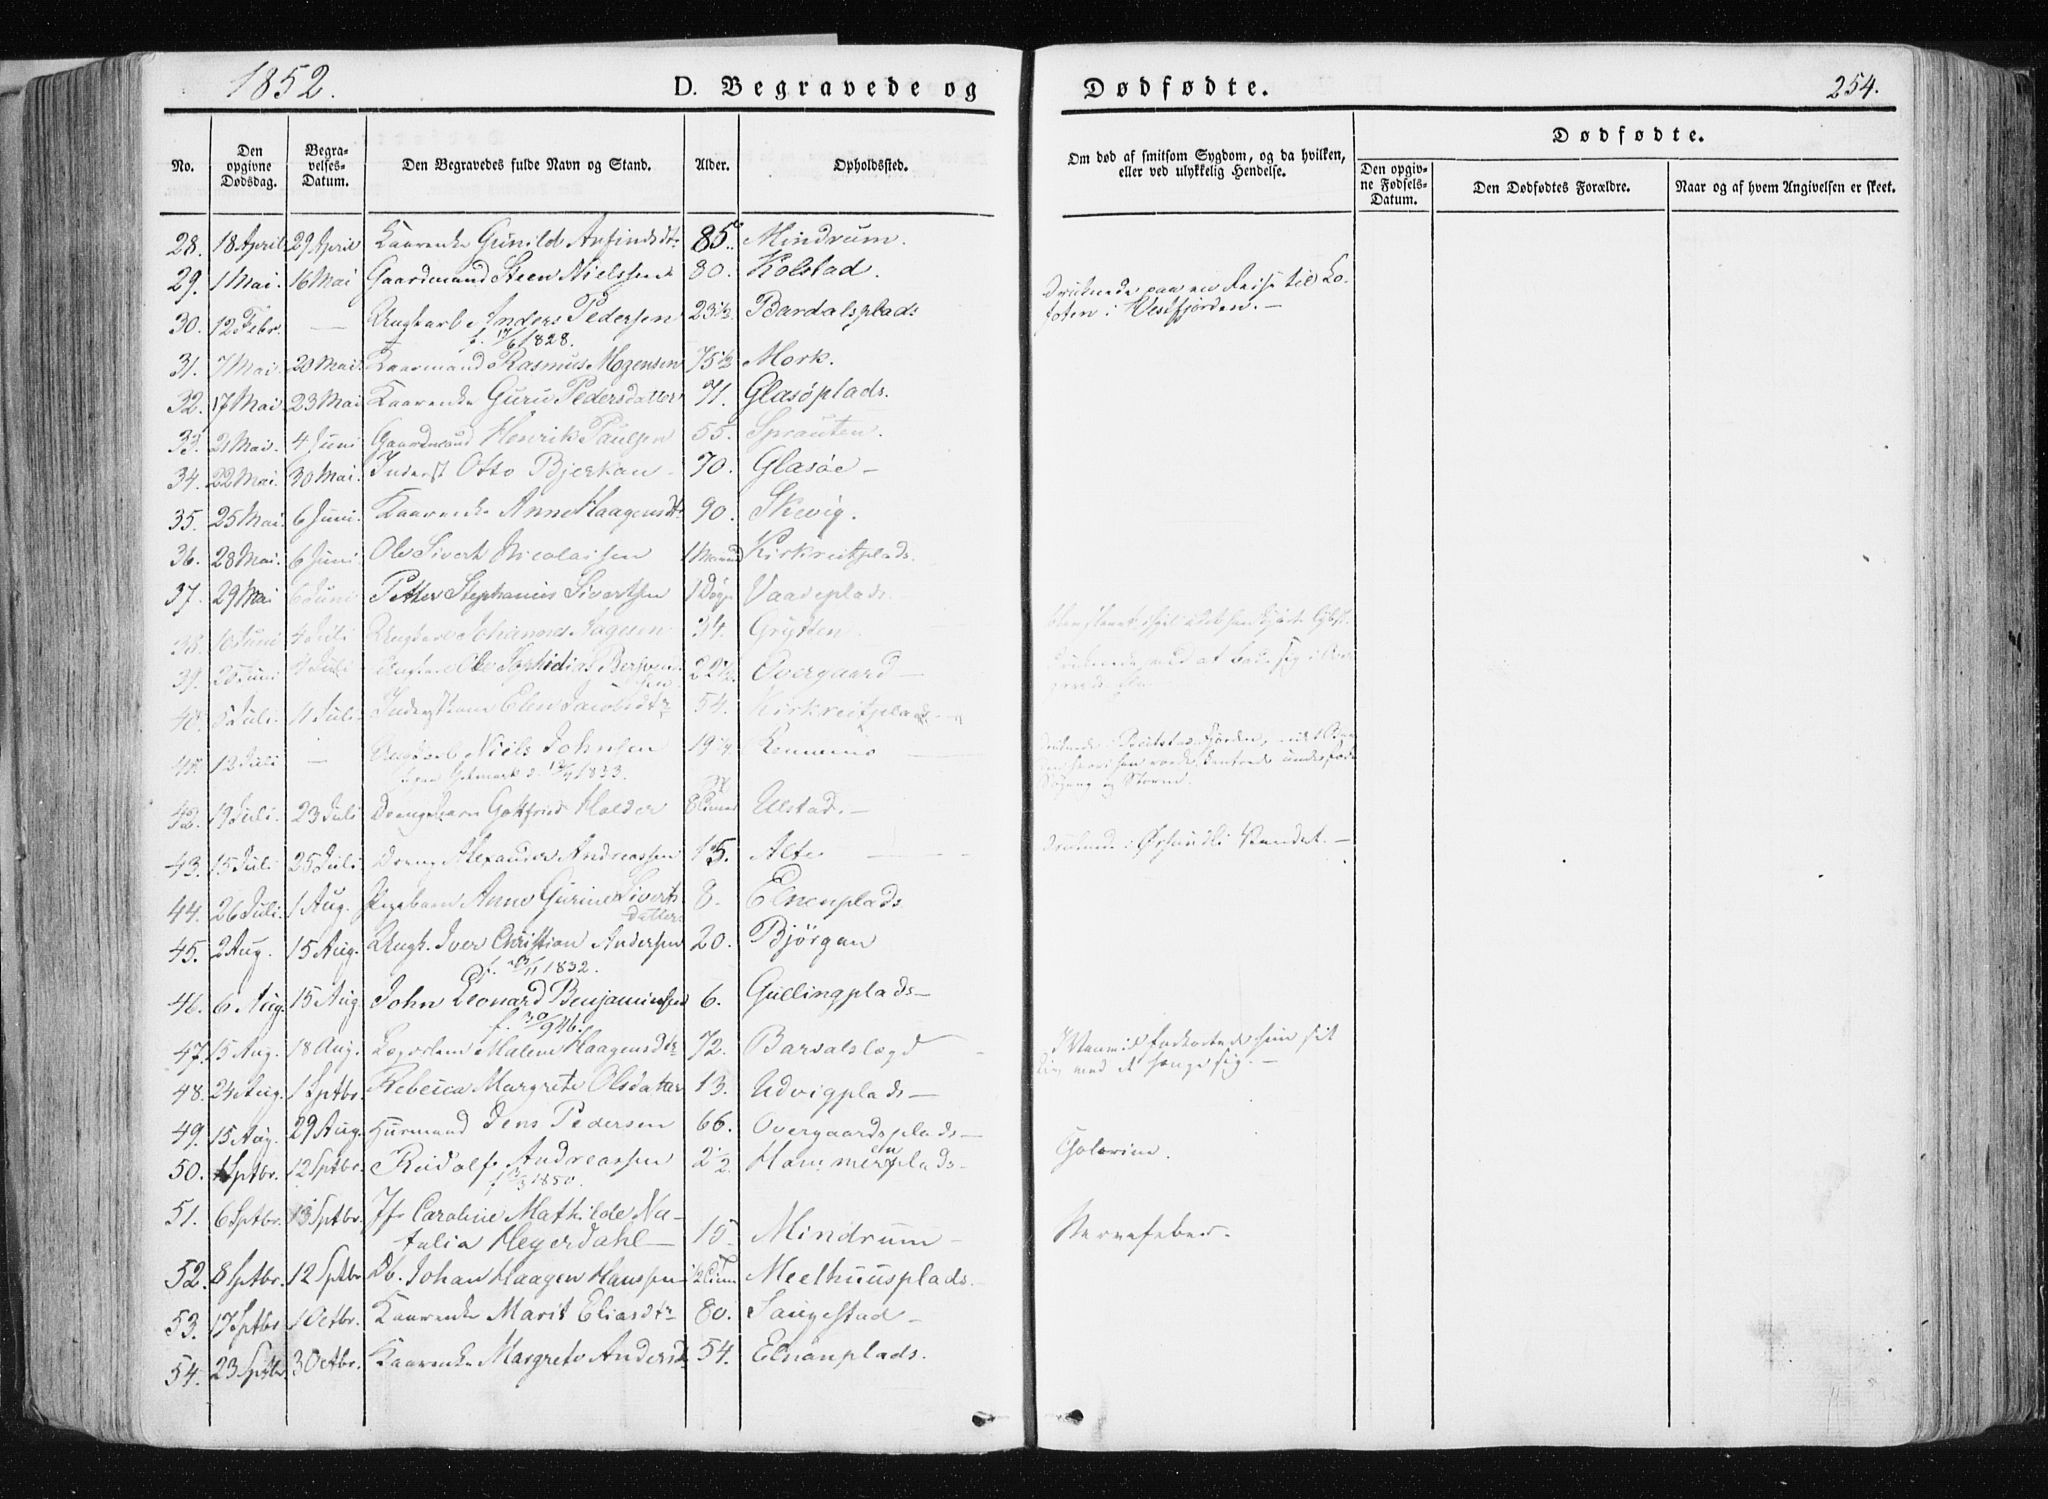 1852.
D. Begravede og
Dødfødte.
254.
No.
Den opgivne Dødsdag.
Begravelses-Datum.
Den Begravedes fulde Navn og Stand.
Alder.
Opholdssted.
Om død af smitsom Sygdom, og da hvilken, eller ved ulykkelig Hendelse.
Dødfødte.
Den opgivne Fødsels-Datum.
Den Dødfødtes Forældre.
Naar og af hvem Angivelsen er skeet.
28. 18 April 29 April Kaarenke Gunild Anfindsdtr 85. Mindrum.
29. 1 Mai. 16 Mai Gaardmand Steen Nielssen 80. Kolstad.
30. 12 Febr. — Ungkarl Anders Pedersen 23 1/2 Bardalsplads Druknede paa en Reise til Lo-
f. 17/6 1828. foten i Vestfjorden. —
31. 7 Mai. 20 Mai. Kaarmand Rasmus Mogensen 75 1/2 Mork.
32. 17 Mai. 23 Mai Kaarenke Guru Pedersdatter 71. Glasøplads.
33. 21 Mai. 4 Juni Gaardmand Henrik Paulsen 55. Sprauten.
34. 22 Mai. 30 Mai. Inderst Otto Bjerkan 70. Glasøe —
35. 25 Mai. 6 Juni. Kaarenke Anne Haagensdtr 90. Skevig.
36. 28 Mai. 6 Juni Ole Sivert Nicolaisen 1 Maaned Kirkreitplads.
37. 29 Mai 6 Juni Petter Stephanus Sivertsen 1 Døgn Vaadeplads.
38. 10 Juni 4 Juli Ungkarl Johannes Aagesen 34. Grytten.
39. 4 Juli Ole 22 1/2 Overgaard — Druknede ved at bade sig i
40. 5 Juli 11 Juli Ellen Jacobsdtr 54. Kirkreitplads —
41. 12 Juli — Ungkarl Niels Johnsen 19 1/4
1833. og Storm.
42. 19 Juli. 23 Juli Drengebarn Gottfried Holder Ulstad. —
43. 15 Juli 25 Juli Dreng Alexander Andreassen 15. Alte — Druknede i Vandet. —
44. 26 Juli. 1 Aug. Pigebarn Anne Gurine Siverts 8. Elnenplads
datter
45. 2 Aug. 15 Aug. Ungk. Iver Christian Andersen 20. Bjørgan
f. 1832.
46. 6 Aug. 15 Aug John Leonard Benjaminsen 6. Gullingplads —
f. 30/9 46.
47. 15 Aug. 18 Aug. Lægdslem Malene Haagensdtr 72. Barvalslægd I Vanvid forkortede hun sit
Liv ved at hænge sig. —
48. 24 Aug. 1 Sptbr. Rebecca Margrete Olsdatter 13. Udvigplads —
49. 15 Aug. 29 Aug. Huusmand Jens Pedersen 66. Overgaardsplads —
50. Sptbr. 12 Sptbr. Rudolf Andreassen 2 1/2 Hammerplads. Cholerine.
1850.
51. 6 Sptbr. 13 Sptbr. Jfr Caroline Mathilde Na-
talia Heyerdahl — 15. Mindrum — Nervefeber.
52. 8 Sptbr. 12 Sptbr Db. Johan Haagen Hanssen Meelhuusplads.
53. 17 Sptbr 1 Octbr. Kaarenke Marit Eliasdtr 80. Saugestad —
54. 23 Sptbr. 3 Octbr. Kaarenke Margrete Andersd. 54. Elnanplads.